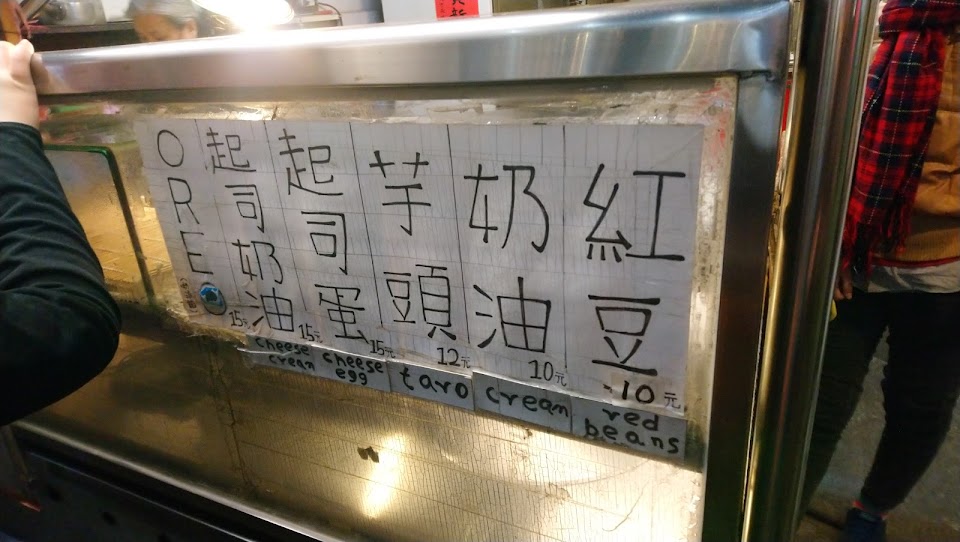 紅豆
10元
奶油
10元
芋頭
12元
起司蛋
15元
起司奶油
15元
ORE
15元
red
beans
crean
taro
cheese
egg
cheese
crean